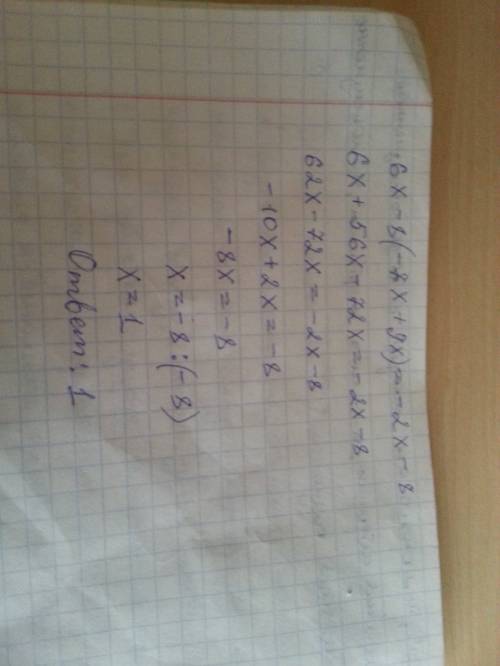 6x - 8(-7x + 9x) = -2x - 8
6x + 56x - 72x = -2x - 8
62x - 72x = -2x - 8
-10x + 2x = -8
-8x = -8
x = -8 : (-8)
x = 1
Ответ: 1